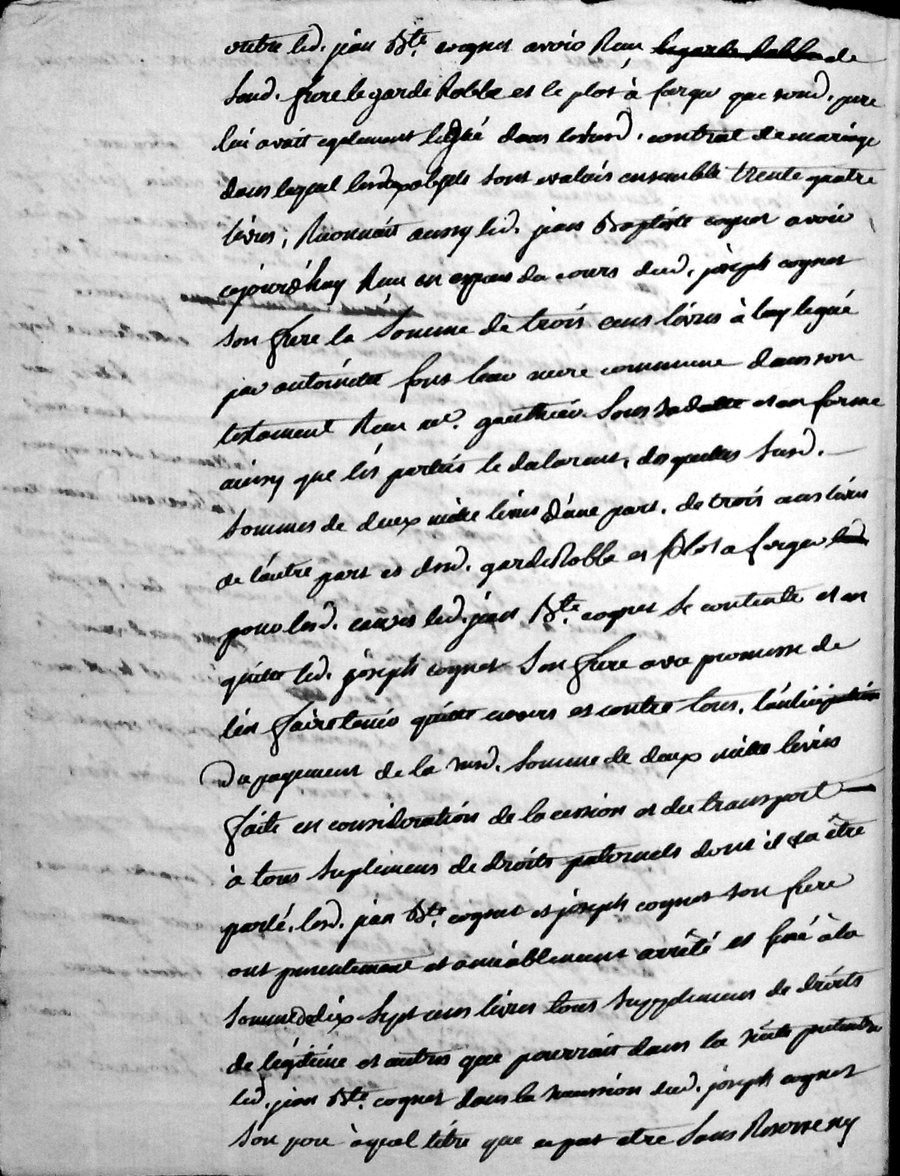 outre led. jean Bte. cognet avoir Reçu le garde Robbe de
Sond. frere le garde Robbe et le plot à forger que sond. pere
lui avoit egalement legué dans lesusd. contrat de mariage
dans lequel lesd. objets sont evalués ensemble trente quatre
livres, Reconnait aussy led. jean Baptiste cognet avoir
cejourd'huy Reçu en especes du cours dud. joseph cognet
son frere la Somme de trois cens livres à luy legué
par antoinette leur mere commune dans son
testament Reçu me. gauthier Sous sa datte et en forme
ainsy que les parties le declarent, desquelles Susd.
sommes de deux mille livres d'une part, de trois cens livres
de l'autre part et desd. garde Robbe et plot a forger
pour lesd. causes led. jean Bte. cognet se contente et en
quitte led. joseph cognet son frere avec promesse de
l'en faire tenir quitte envers et contre tous, l'anticipation
du payement de la susd. somme de deux mille livres
faite en consideration de la cession et du transport
à tous suplemens de droits paternels dont il va être
parlé, lesd. jean Bte. cognet et joseph cognet son frere
ont presentement et amiablement arrêté et fixé à la
somme de dix sept cens livres tous supplemens de droits
de légitime et autres que pourroit dans la suite pretendre
led. jean Bte. cognet dans la succession dud. joseph cognet
son pere à quel titre que ce put etre Sans Reserve ny